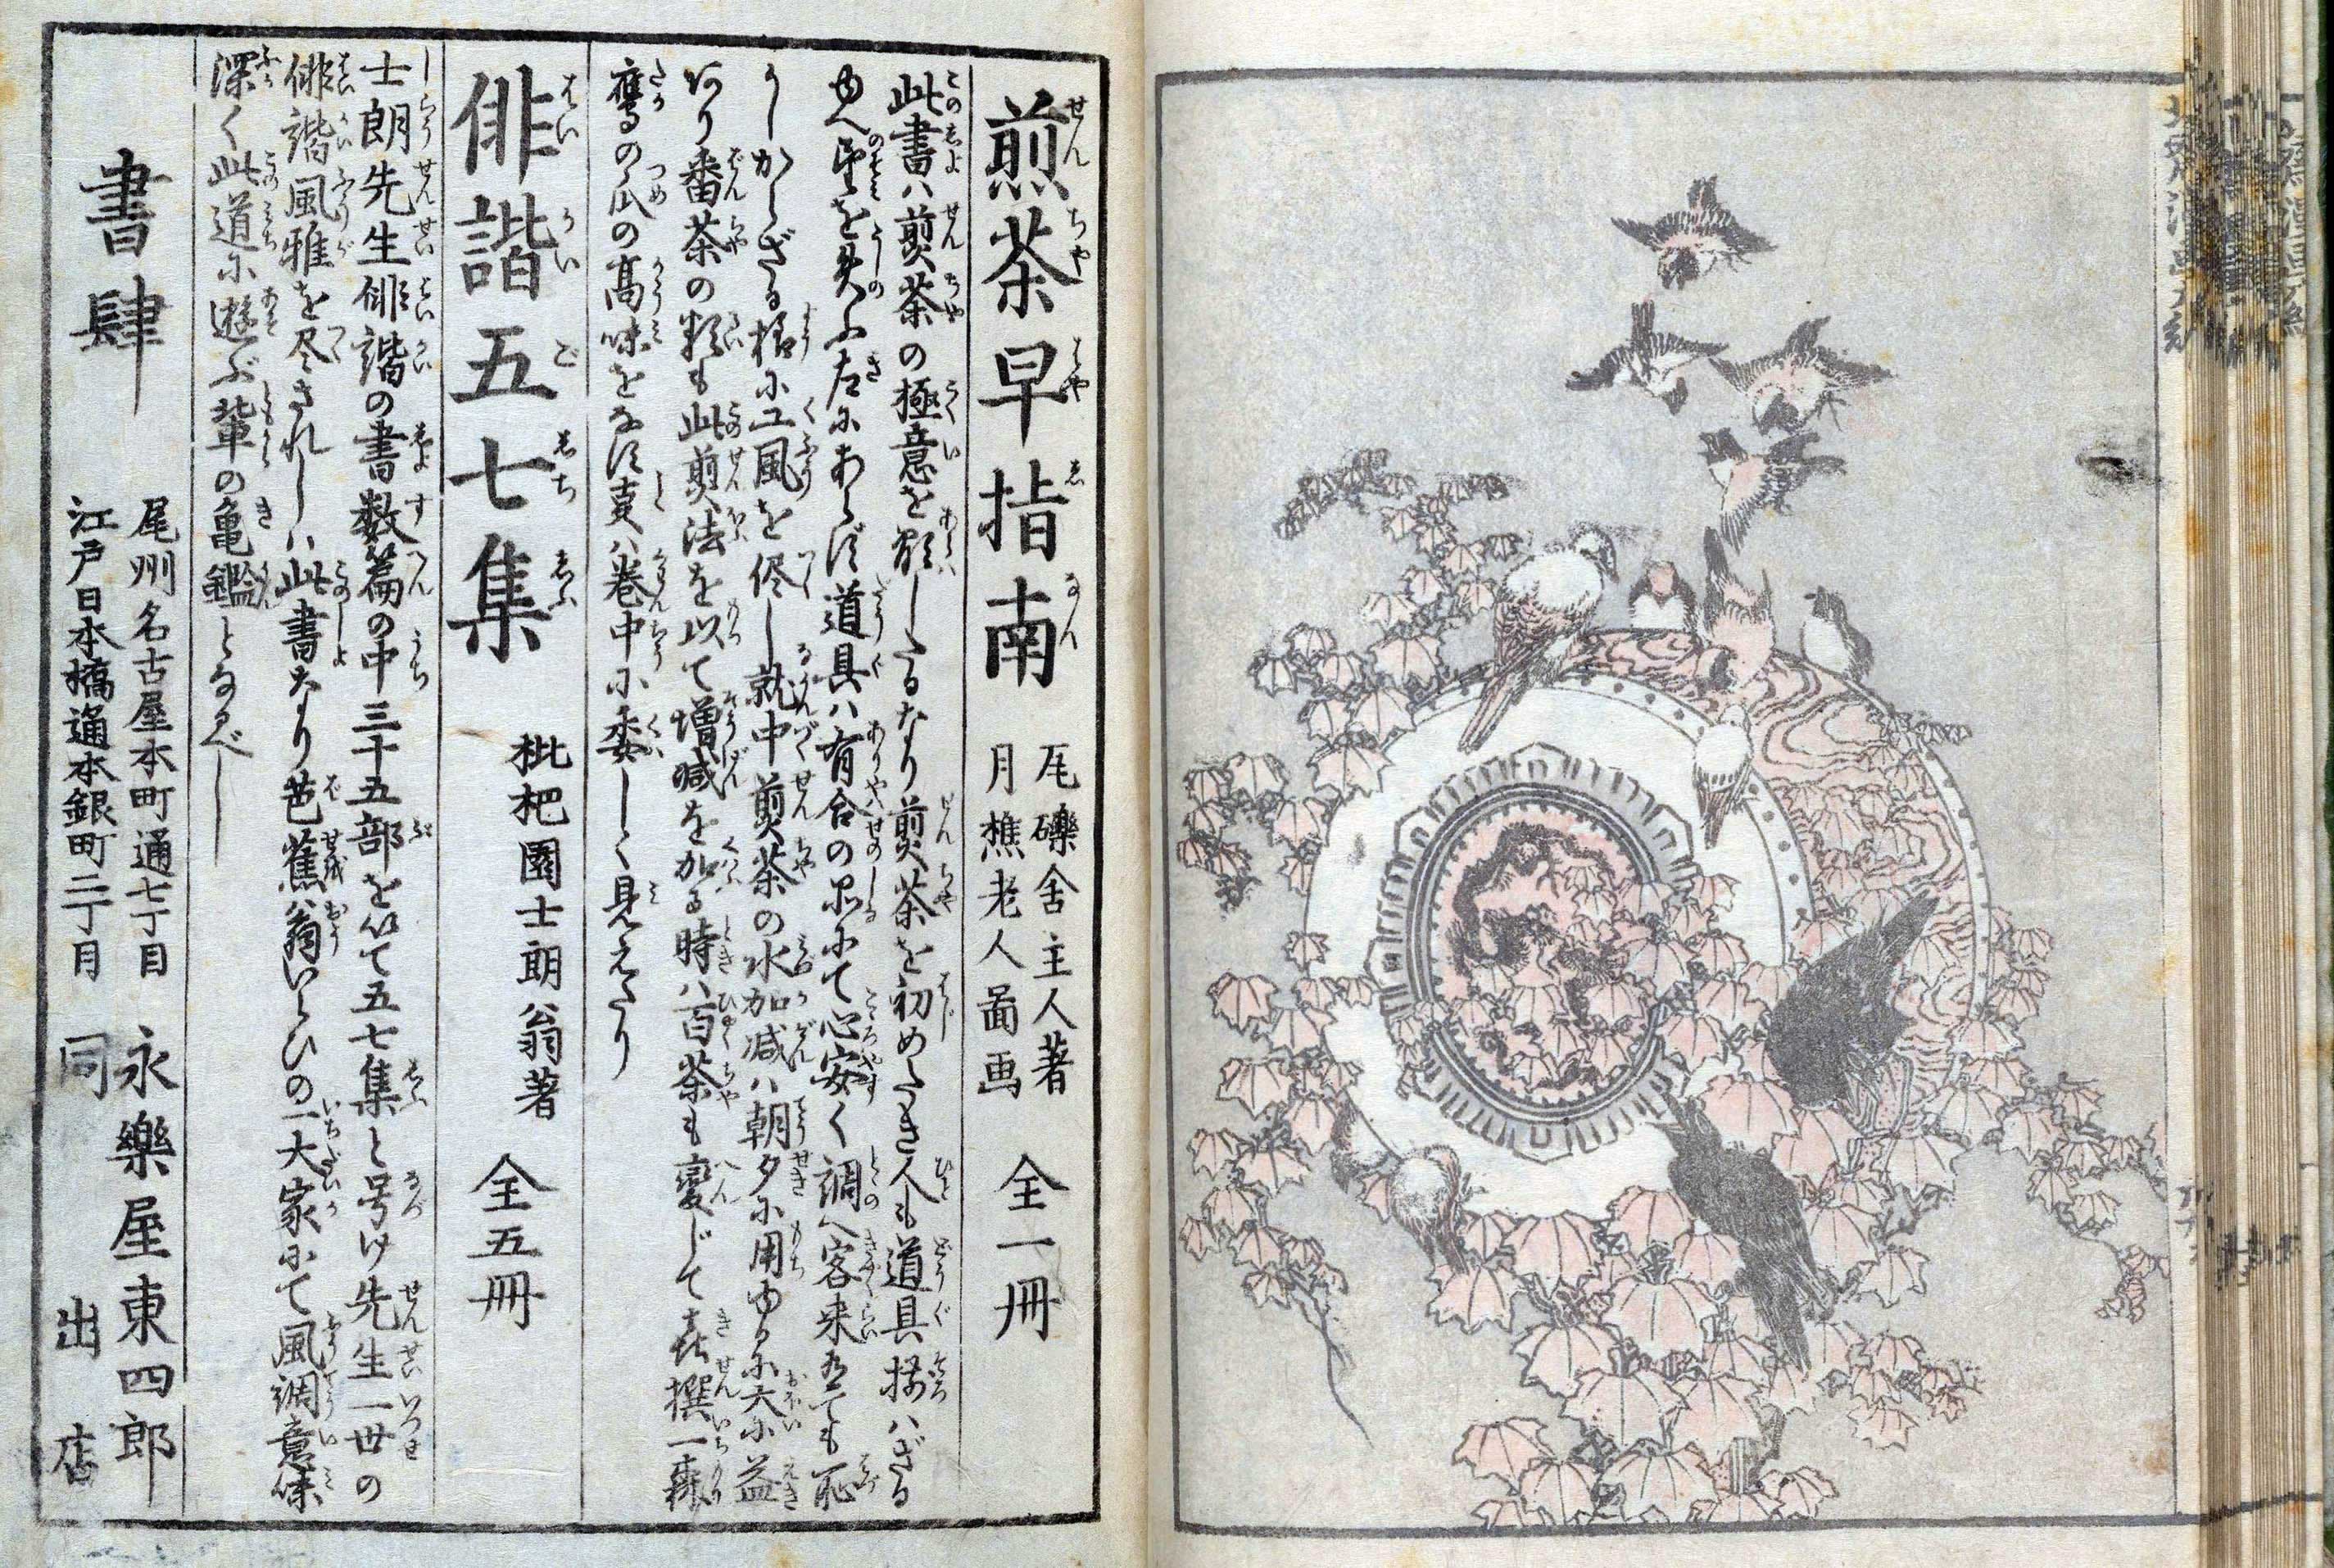 煎茶早指南
尾礫舎主人著
月樵老人画
全一冊
此書ハ煎茶の極意を顕したるなり煎茶を初めたき人も道具揃ハざる
ゆへ望を失ふ左にあらず道具ハ有合の品にて心安く調へ客来有ても恥
しからざる様に工風を尽し就中煎茶の水加減ハ朝夕に用ゆるに大に益
あり番茶の類も此煎法を以て増減を加る時ハ百茶も変じて喜撰一森
鷹の爪の高味をなす事ハ巻中に委しく見えたり
俳諧五七集
枇杷園士朗翁著
全五冊
士朗先生俳諧の書数篇の中三十五部を以て五七集と号け先生一世の
俳諧風雅を尽されしハ此書なり芭蕉翁いらひの一大家にて風調意味
深く此道に遊ぶ輩の亀鑑となるべし
書肆
尾州名古屋本町通七丁目 永樂屋東四郎
江戸日本橋通本銀町二丁目 同 出店